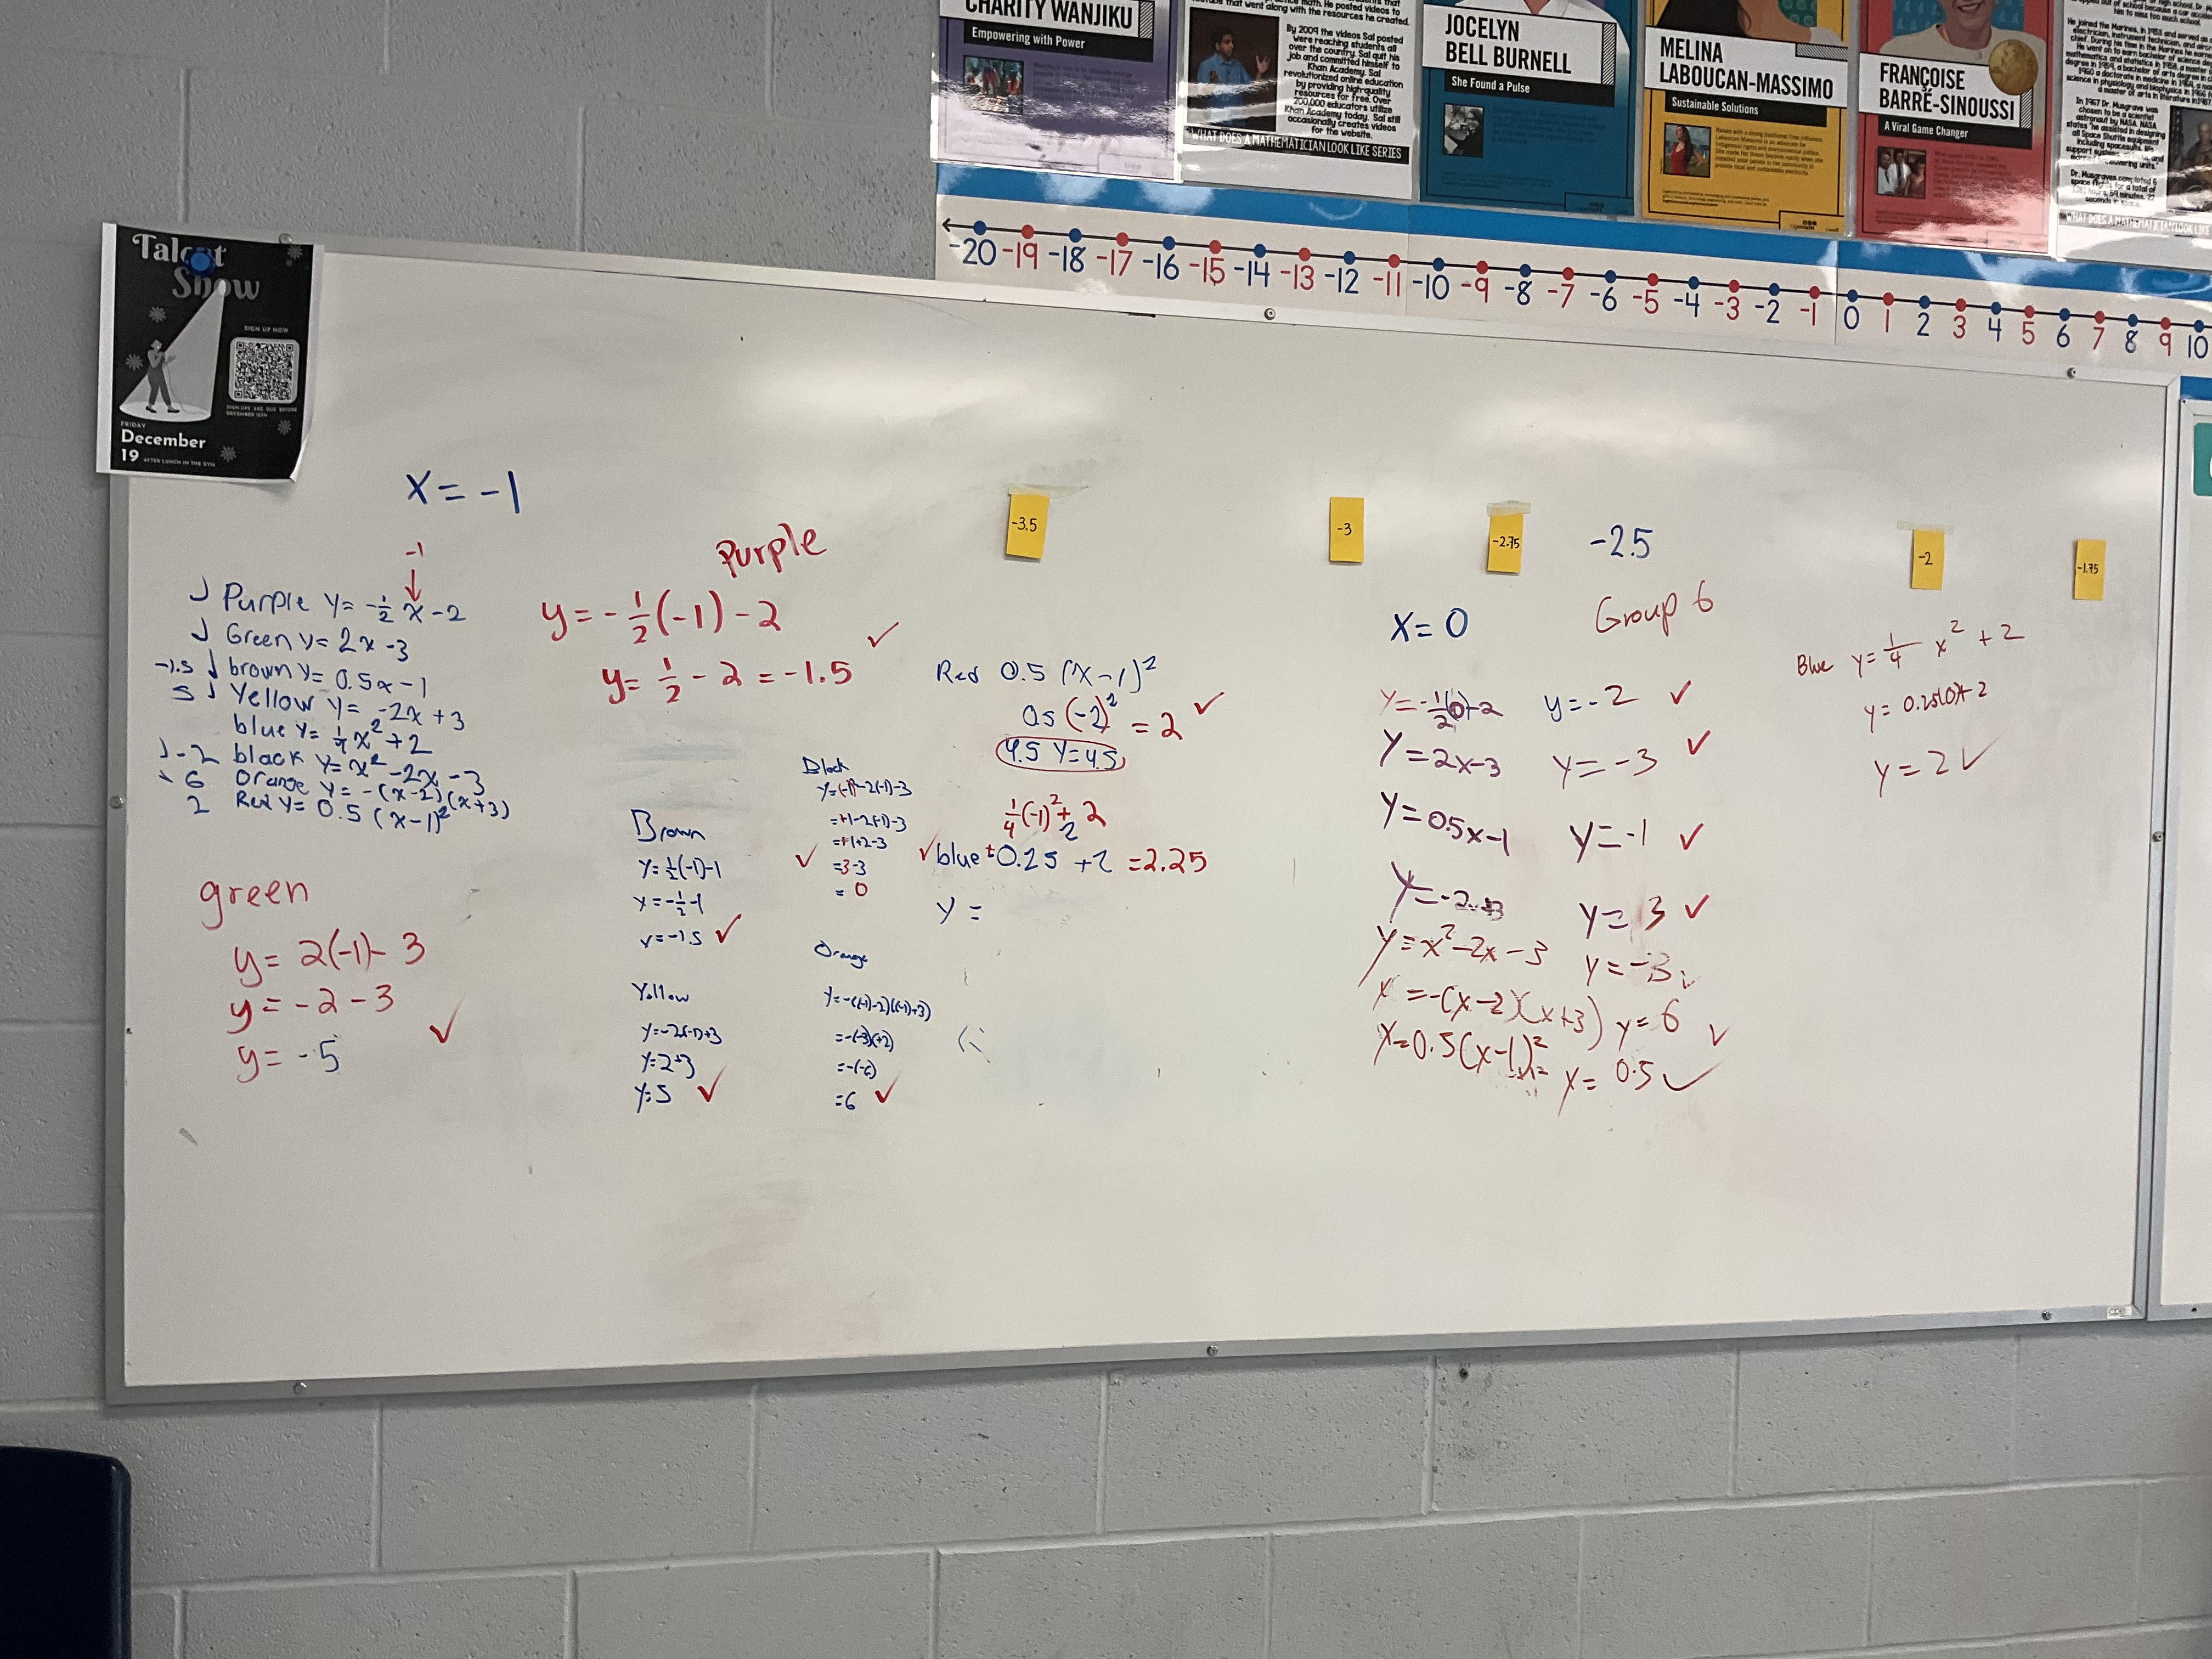 CHARITY WANJIKU
Empowering with Power
practice math. He posted videos to
that went along with the resources he created.
By 2009 the videos Sal posted
were reaching students all
over the country. Sal quit his
job and committed himself to
Khan Academy. Sal
revolutionized online education
by providing high-quality
resources for free. Over
200,000 educators utilize
Khan Academy today. Sal still
occasionally creates videos
for the website.
WHAT DOES A MATHEMATICIAN LOOK LIKE SERIES
JOCELYN
BELL BURNELL
She Found a Pulse
MELINA
LABOUCAN-MASSIMO
Sustainable Solutions
FRANÇOISE
BARRÉ-SINOUSSI
A Viral Game Changer
In 1967 Dr. Musgrave was
chosen to be a scientist
astronaut by NASA. NASA
states "he assisted in designing
all Space Shuttle equipment
including spacesuits, life
Dr. Musgraves completed 6
space flights for a total of
WHAT DOES A MATHEMATICIAN LOOK LIKE
-20 -19 -18 -17 -16 -15 -14 -13 -12 -11 -10 -9 -8 -7 -6 -5 -4 -3 -2 -1 0 1 2 3 4 5 6 7 8 9 10
Talent
Show
SIGN UP NOW
SIGN-UPS ARE DUE BEFORE
DECEMBER 15TH
FRIDAY
December
19 AFTER LUNCH IN THE GYM
x = -1
-1
↓
Purple y = -1/2 x - 2
Green y = 2x - 3
-1.5 brown y = 0.5x - 1
5 Yellow y = -2x + 3
blue y = 1/4 x² + 2
-2 black y = x² - 2x - 3
6 Orange y = -(x-2)(x+3)
2 Red y = 0.5 (x-1)²
green
y = 2(-1) - 3
y = -2 - 3
y = -5 ✓
Purple
y = -1/2(-1) - 2
y = 1/2 - 2 = -1.5 ✓
Brown
y = 1/2(-1) - 1
y = -1/2 - 1
y = -1.5 ✓
Yellow
y = -2(-1) + 3
y = 2 + 3
y = 5 ✓
Black
y = (-1)² - 2(-1) - 3
= +1 - 2(-1) - 3
= +1 + 2 - 3
= 3 - 3
= 0 ✓
Orange
y = -((-1)-2)((-1)+3)
= -(-3)(+2)
= -(-6)
= 6 ✓
Red 0.5 (x-1)²
0.5 (-2)² = 2 ✓
4.5 y = 4.5
1/4 (-1)² + 2
2
✓ blue + 0.25 + 2 = 2.25
y =
-3.5
-3
-2.75
-2.5
-2
-1.75
x = 0
Group 6
y = -1/2(0) - 2 y = -2 ✓
y = 2x - 3 y = -3 ✓
y = 0.5x - 1 y = -1 ✓
y = -2x + 3 y = 3 ✓
y = x² - 2x - 3 y = -3 ✓
y = -(x-2)(x+3) y = 6 ✓
y = 0.5(x-1)² y = 0.5 ✓
Blue y = 1/4 x² + 2
y = 0.25(0) + 2
y = 2 ✓